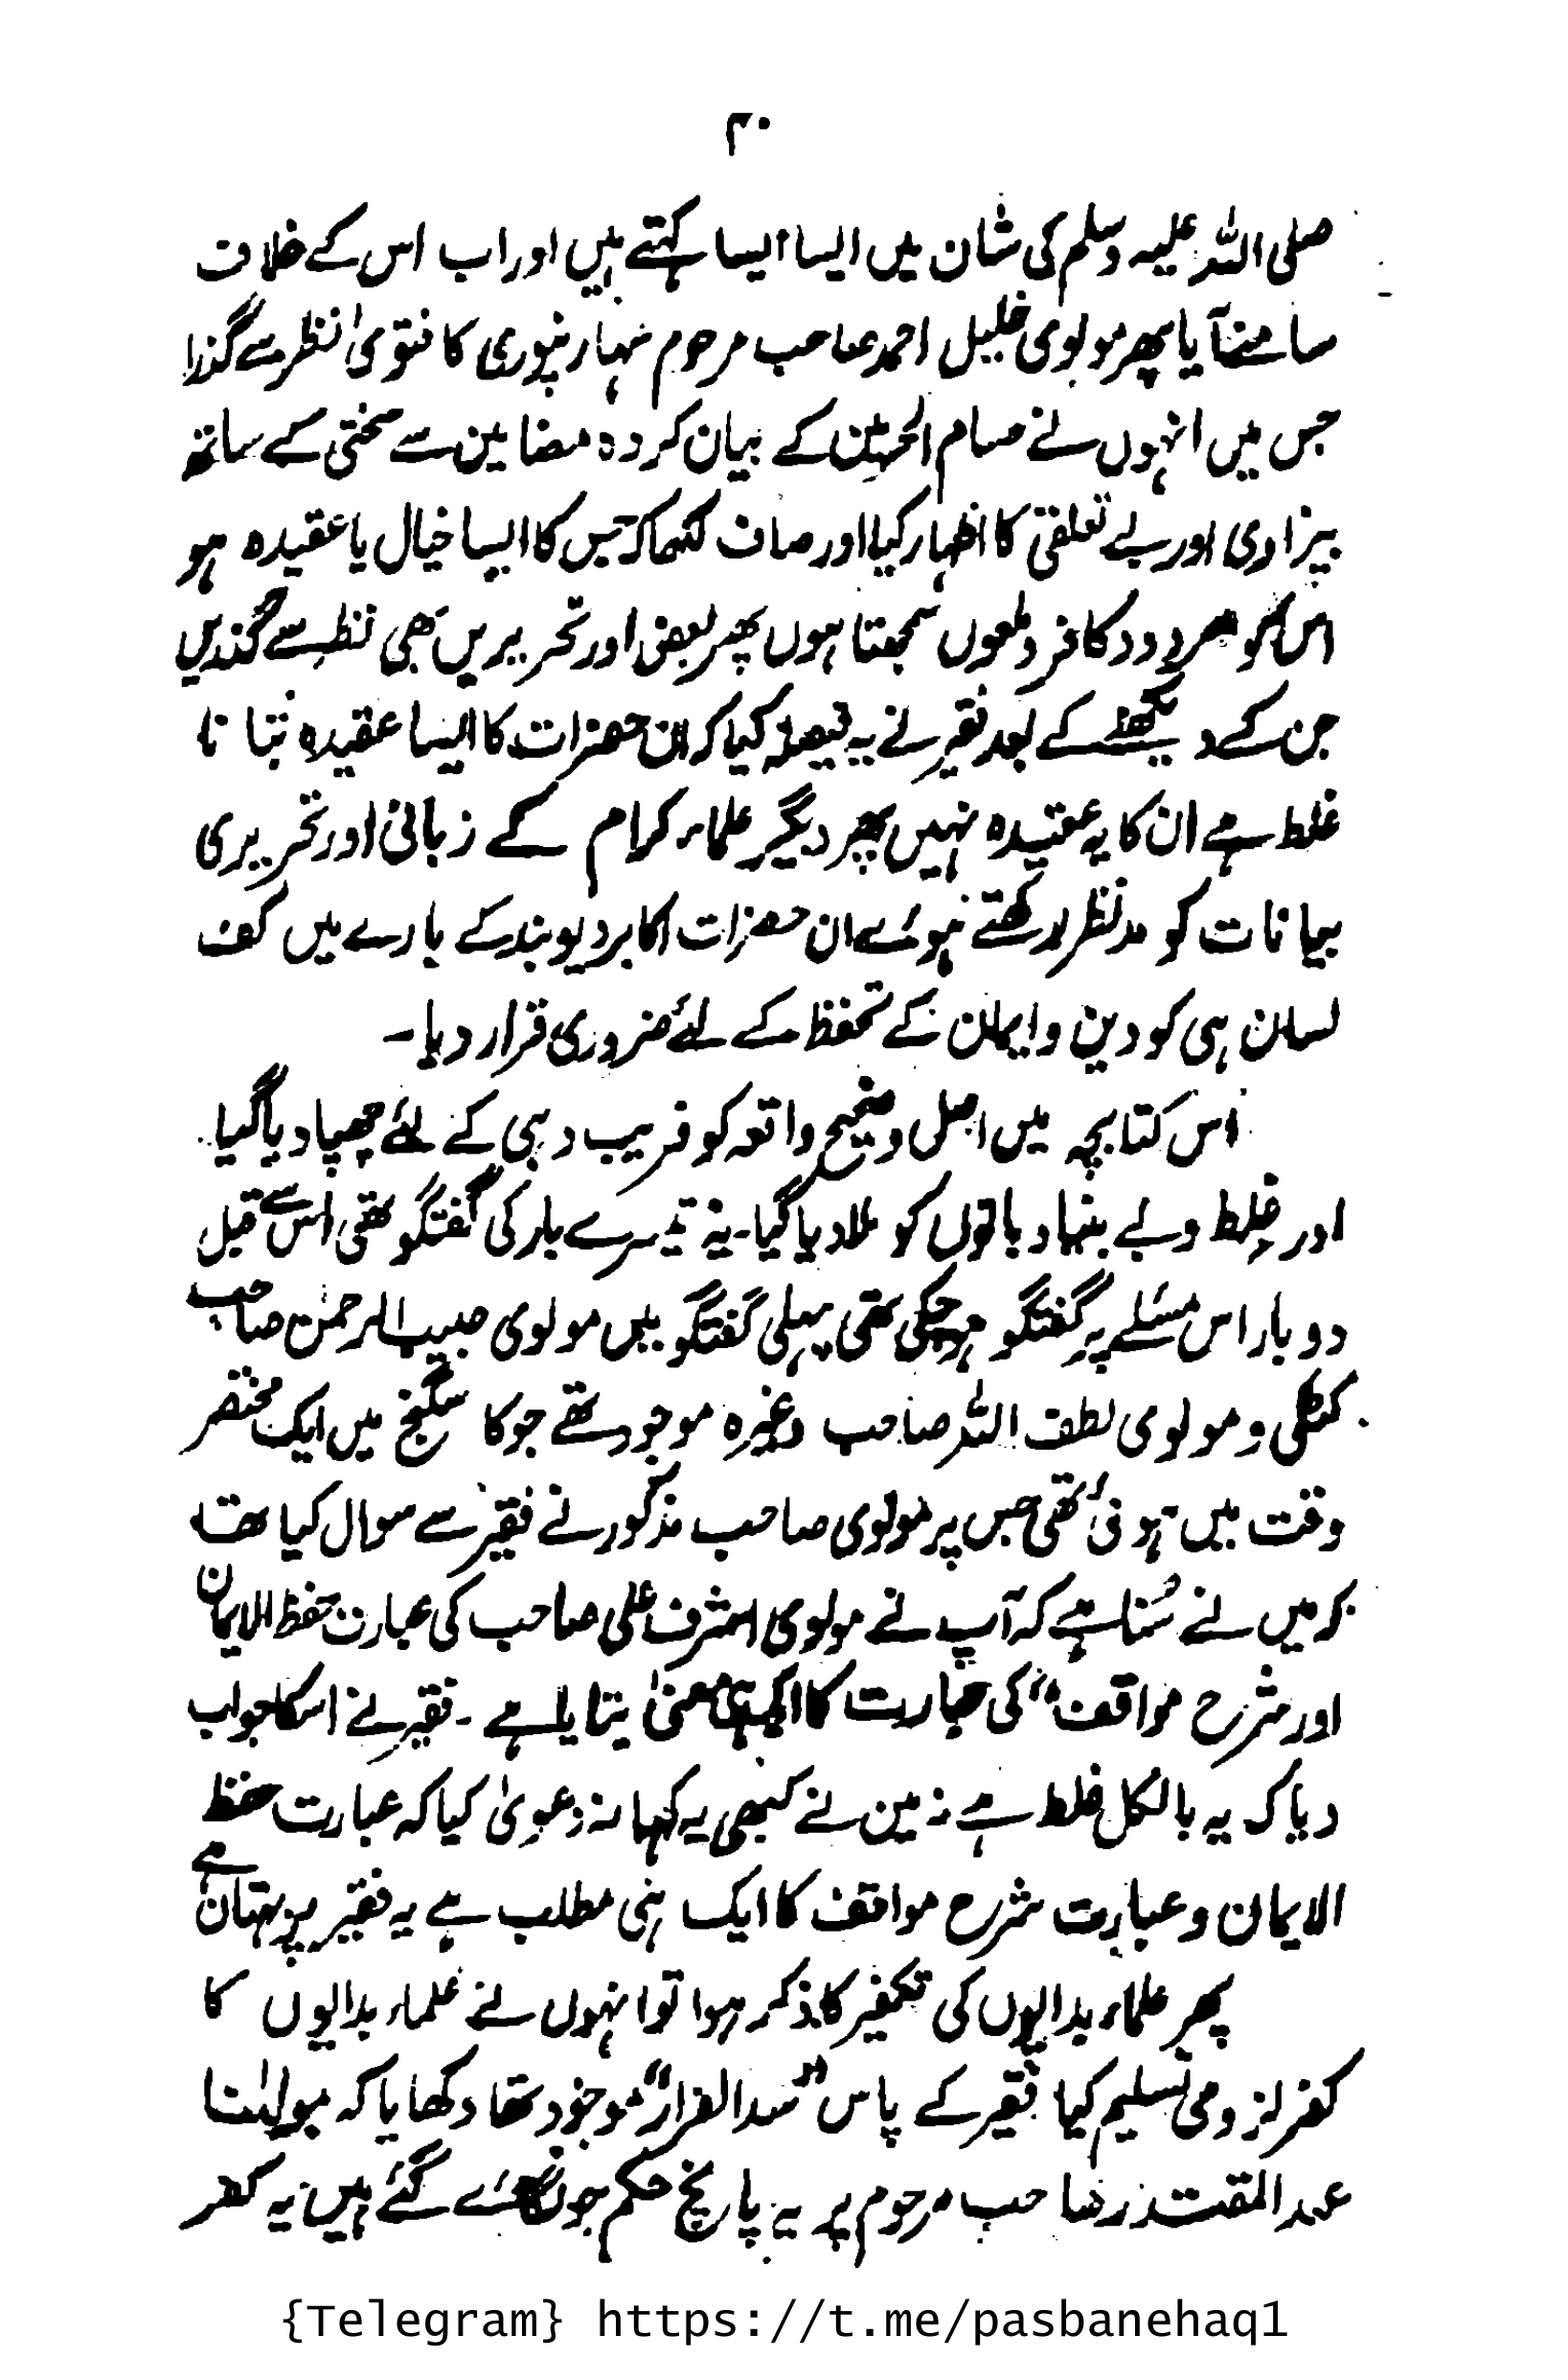 ۲۰
صلی اللہ علیہ وسلم کی شان میں ایسا ایسا کہتے ہیں اور اب اس کے خلاف
سامنے آیا پھر مولوی خلیل احمد صاحب مرحوم سہارنپوری کا فتویٰ نظر سے گذرا
جس میں انہوں نے حسام الحرمین کے بیان کردہ مضامین سے سختی کے ساتھ
بیزاری اور بے تعلقی کا اظہار کیا اور صاف لکھا کہ جس کا ایسا خیال یا عقیدہ ہو
اس کو مردود کافر و ملعون سمجھتا ہوں پھر بعض اور تحریریں بھی نظر سے گذریں
جن کے دیکھنے کے بعد فقیر نے یہ فیصلہ کیا کہ ان حضرات کا ایسا عقیدہ بتانا
غلط ہے ان کا یہ عقیدہ نہیں پھر دیگر علماء کرام کے زبانی اور تحریری
بیانات کو مدنظر رکھتے ہوئے ان حضرات اکابر دیوبند کے بارے میں کف
لسان ہی کو دین وایمان کے تحفظ کے لئے ضروری قرار دیا۔
اس کتابچہ میں اصل و صحیح واقعہ کو فریب دہی کے لئے چھپا دیا گیا
اور غلط و بے بنیاد باتوں کو ملا دیا گیا۔ یہ تیسرے بار کی گفتگو تھی اس سے قبل
دو بار اس مسئلے پر گفتگو ہو چکی تھی پہلی گفتگو میں مولوی حبیب الرحمٰن صاحب
کٹکی و مولوی لطف اللہ صاحب وغیرہ موجود تھے جو کاسگنج میں ایک مختصر
وقت میں ہوئی تھی جس پر مولوی صاحب مذکور نے فقیر سے سوال کیا تھا
کہ میں نے سُنا ہے کہ آپ نے مولوی اشرف علی صاحب کی عبارت حفظ الایمان
اور شرح مواقف" کی عبارت کا ایک ہی معنیٰ بتایا ہے۔ فقیر نے اسکا جواب
دیا کہ یہ بالکل غلط ہے نہ میں نے کبھی یہ کہا نہ دعویٰ کیا کہ عبارت حفظ
الایمان و عبارت شرح مواقف کا ایک ہی مطلب ہے یہ فقیر پر بہتان ہے
پھر علماء بدایوں کی تکفیر کا ذکر ہوا تو انہوں نے علماء بدایوں کا
کفر لزومی تسلیم کیا فقیر کے پاس "سد الفرار" موجود تھا دکھایا کہ مولٰینا
عبدالمقتدر صاحب مرحوم پر یہ پانچ حکم جو لگائے گئے ہیں یہ کفر
{Telegram} https://t.me/pasbanehaq1